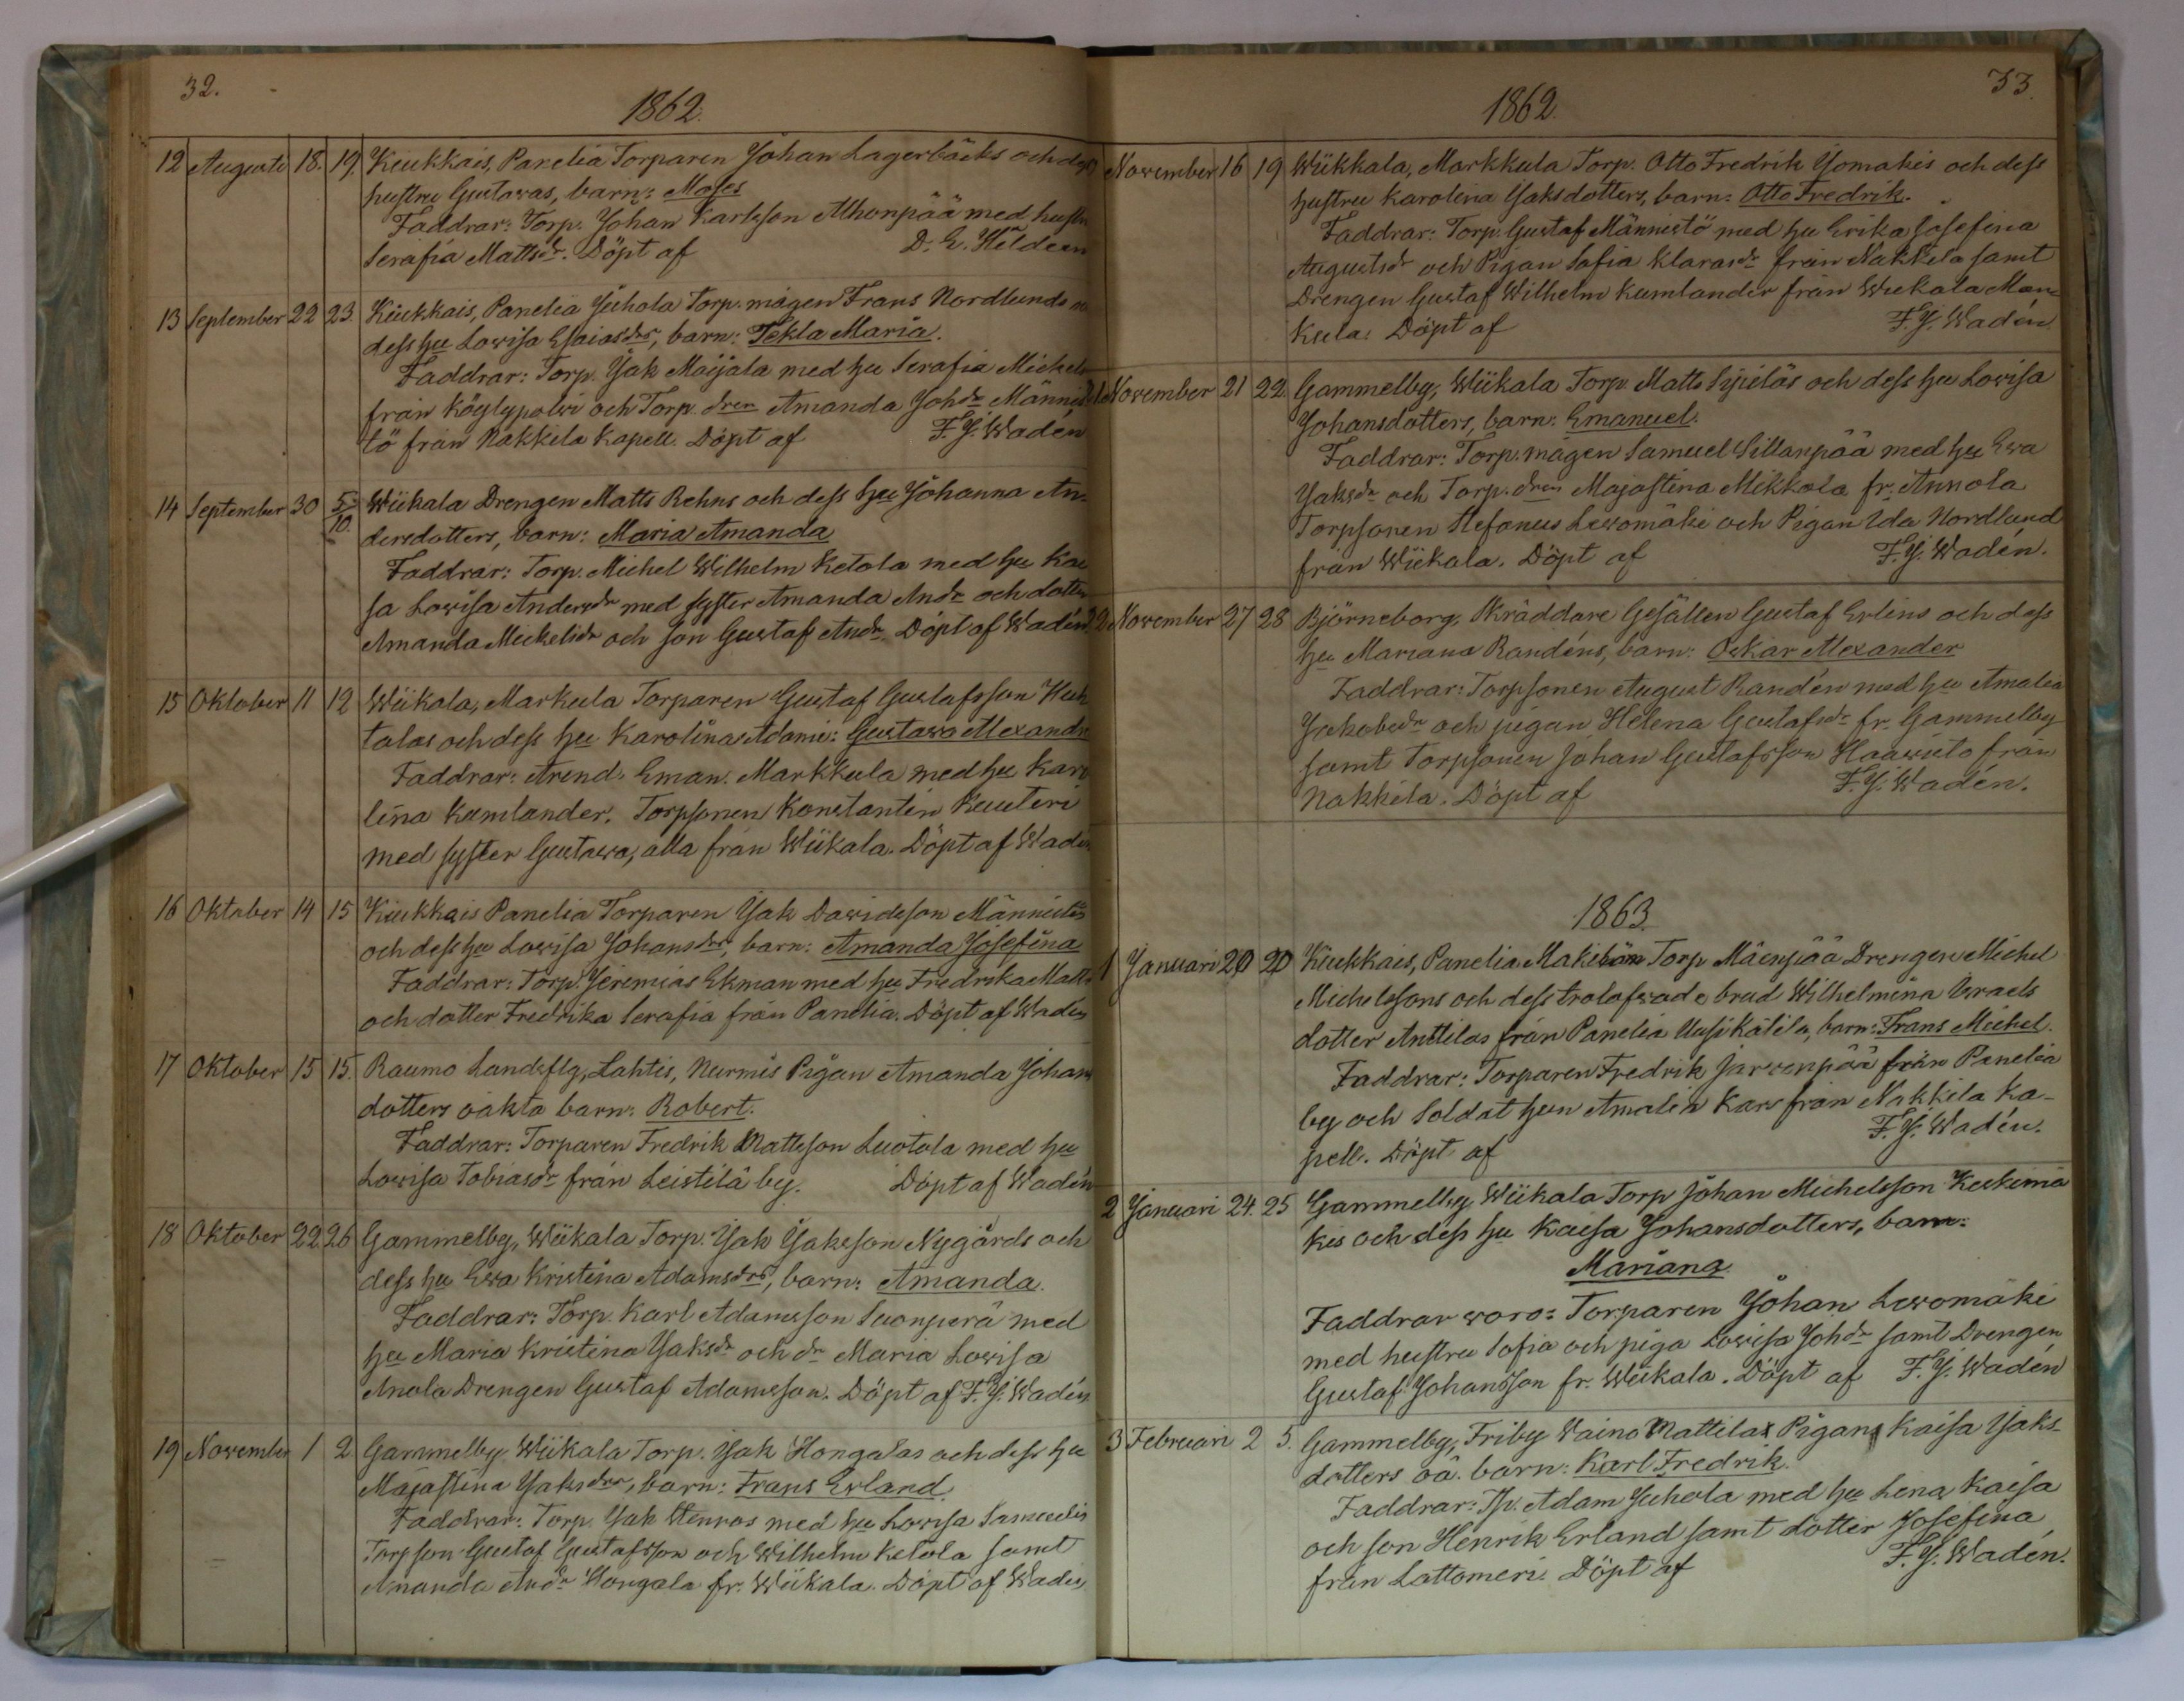 32.
1862.
12 Augusti 18. 19. Kiukkais, Panelia Torparen Johan Lagerbäcks och dess
hustru Gustavas, barn: Moses
Faddrar: Torp. Johan Karlsson Alhonpää med hustru
Serafia Mattsdr. Döpt af D. E. Hildeen
13 September 22 23 Kiukkais, Panelia Juhola Torp. mågen Frans Nordlunds
dess hu Lowisa Esaiasdrs, barn: Tekla Maria.
Faddrar: Torp. Jak Maijala med hu Serafia Michels
från Köylypolwi och Torp. dren Amanda Johdr Männis
tö från Nakkila Kapell. Döpt af F. J. Wadén
14 September 30 5/10. Wiikala Drengen Matts Rehns och dess hu Johanna An-
dersdotters, barn: Maria Amanda
Faddrar: Torp. Michel Wilhelm Ketola med hu Kai
sa Lowisa Andersdr med syster Amanda Andr och dotter
Amanda Mickelsdr och son Gustaf Andr. Döpt af Wadén
15 Oktober 11 12 Wiikala, Markula Torparen Gustaf Gustafsson Huh
talas och dess hu Karolina Adami: Gustawa Alexandra
Faddrar: Arend. Eman. Markkula med hu Karo
lina Kumlander. Torpsonen Konstantin Kuuteri
med syster Gustawa, alla från Wiikala. Döpt af Wadén
16 Oktober 14 15 Kiukkais Panelia Torparen Jak Davidsson Männistös
och dess hu Lowisa Johansdrs, barn: Amanda Josefina
Faddrar: Torp. Jeremias Ekman med hu Fredrika Matts
och dotter Fredrika Serafia från Panelia. Döpt af Wadén
17 Oktober 15 15. Raumo Landsflg, Lahtis, Nurmis Pigan Amanda Johans
dotters oäkta barn: Robert.
Faddrar: Torparen Fredrik Mattsson Luotola med hu
Lowisa Tobiasdr från Leistilä by. Döpt af Wadén
18 Oktober 22 26 Gammelby, Wiikala Torp. Jak Jaksson Nygårds och
dess hu Ewa Kristina Adamsdrs, barn: Amanda.
Faddrar: Torp. Karl Adamsson Suonperä med
hu Maria Kristina Jaksdr och dr Maria Lowisa
Anola Drengen Gustaf Adamsson. Döpt af F. J. Wadén
19 November 1 2 Gammelby Wiikala Torp. Jak Hongalas och dess hu
Majastina Jaksdrs, barn: Frans Erland.
Faddrar: Torp. Jak Stenros med hu Lowisa Samuels
Torpson Gustaf Gustafsson och Wilhelm Ketola samt
Amanda Andr Hongala fr. Wiikala. Döpt af Wadén
33.
1862.
November 16 19 Wiikkala, Markkula Torp. Otto Fredrik Isomäkis och dess
hustru Karolina Jaksdotters, barn: Otto Fredrik.
Faddrar: Torp. Gustaf Männistö med hu Erika Josefina
Augustsdr och Pigan Sofia Klarasdr från Nakkila samt
Drengen Gustaf Wilhelm Kumlander från Wiikala Mar-
kkula. Döpt af F. J. Wadén
November 21 22. Gammelby, Wiikala Torp. Matts Sipiläs och dess hu Lowisa
Johansdotters, barn: Emanuel.
Faddrar: Torp. mågen Samuel Sillanpää med hu Ewa
Jaksdr och Torp. dren Majastina Mikkola fr. Annola
Torpsonen Stefanus Lewomäki och Pigan Ida Nordlund
från Wiikala. Döpt af F. J. Wadén.
2 November 27 28 Björneborg, Skräddare Gesällen Gustaf Erlins och dess
hu Mariana Randéns, barn: Oskar Alexander
Faddrar: Torpsonen August Randén med hu Amalia
Jakobsdr och pigan Helena Gustafsdr fr. Gammelby
samt Torpsonen Johan Gustafsson Haawisto från
Nakkila. Döpt af F. J. Wadén.
1863.
1 Januari 20 20 Kiukkais, Panelia Torp Mäenpää Drengen Michel
Michelssons och dess trolofwade brud Wilhelmina Israels
dotter Anttilas från Panelia Uusikätilä, barn: Frans Michel.
Faddrar: Torparen Fredrik Jarvenpää från Panelia
by och Soldat hun Amalia Kars från Nakkila Ka-
pell. Döpt af F. J. Wadén.
2 Januari 24. 25 Gammelby Wiikala Torp Johan Michelsson Keskimä
kis och dess hu Kaisa Johansdotters, barn:
Mariana
Faddrar woro: Torparen Johan Lewomäki
med hustru Sofia och piga Lowisa Johdr samt Drengen
Gustaf Johansson fr. Wiikala. Döpt af F. J. Wadén
3 Februari 2 5. Gammelby, Friby Waino Mattilas Pigan Kaisa Jaks-
dotters oä. barn: Karl Fredrik.
Faddrar: Tp. Adam Juhola med hu Lena Kaisa
och son Henrik Erland samt dotter Josefina
från Lattomeri. Döpt af F. J. Wadén.